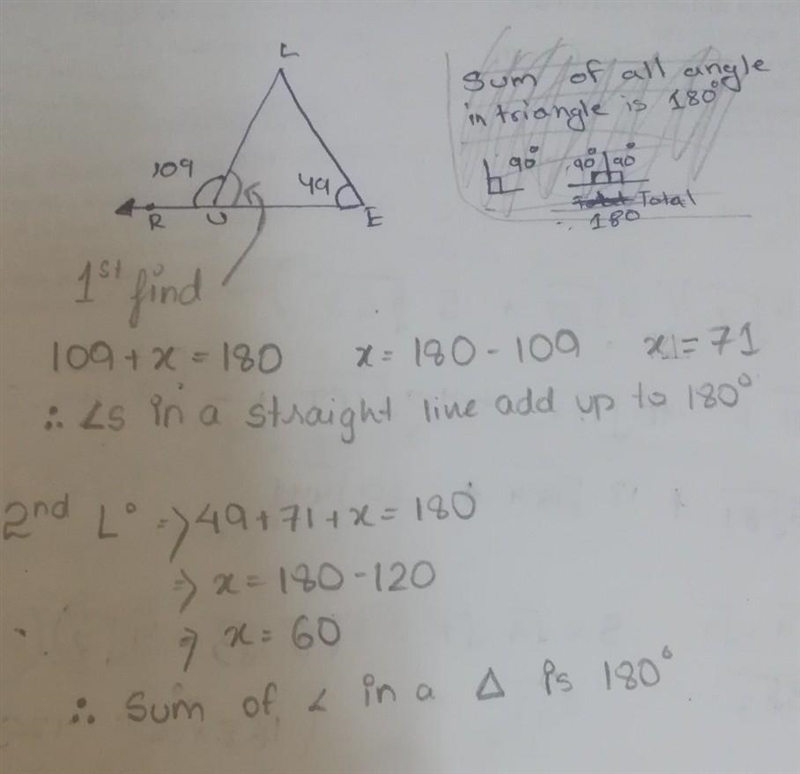 L
109
49
R U E
Sum of all angle
in triangle is 180°
90° 90° 90°
Total
∴ 180
1st find
109 + x = 180 x = 180 - 109 x = 71
∴ ∠s in a straight line add up to 180°
2nd L° => 49 + 71 + x = 180°
=> x = 180 - 120
=> x = 60
∴ Sum of ∠ in a △ is 180°